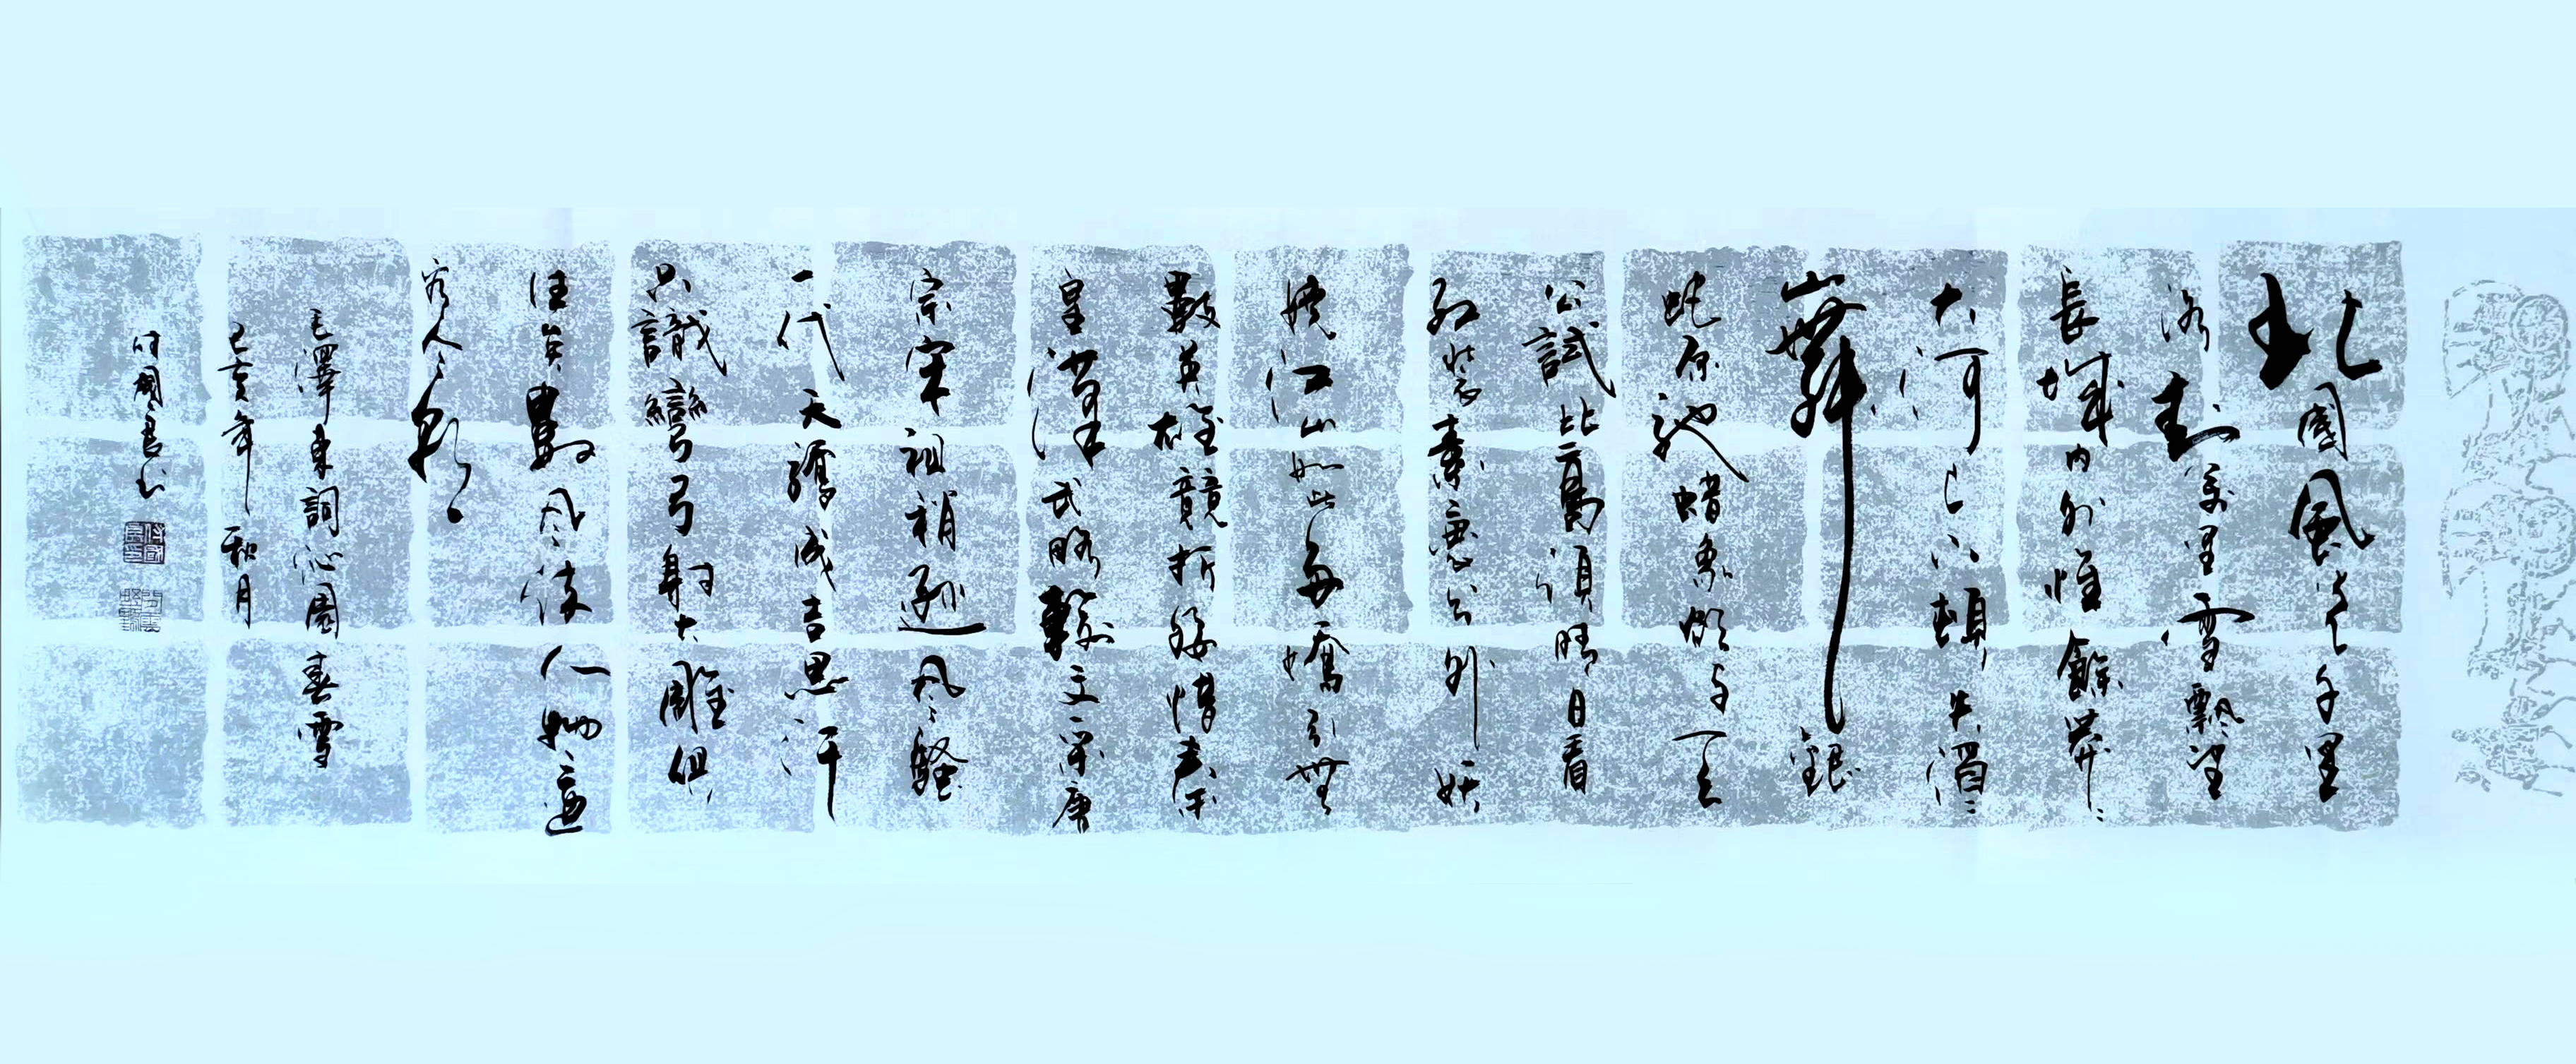 北國風光千里
冰封萬里雪飄望
長城内外惟餘莽〻
大河上下頓失滔〻
山舞銀
蛇原馳蜡象欲与天
公試比高須晴日看
紅裝素裹分外妖
嬈江山如此多嬌引無
數英雄競折腰惜秦
皇漢武略輸文采唐
宗宋祖稍遜風騷
一代天驕成吉思汗
只識彎弓射大雕俱
往矣數風流人物還
看今朝
毛澤東詞沁園春雪
己亥年秋月
付國良书
付國良印